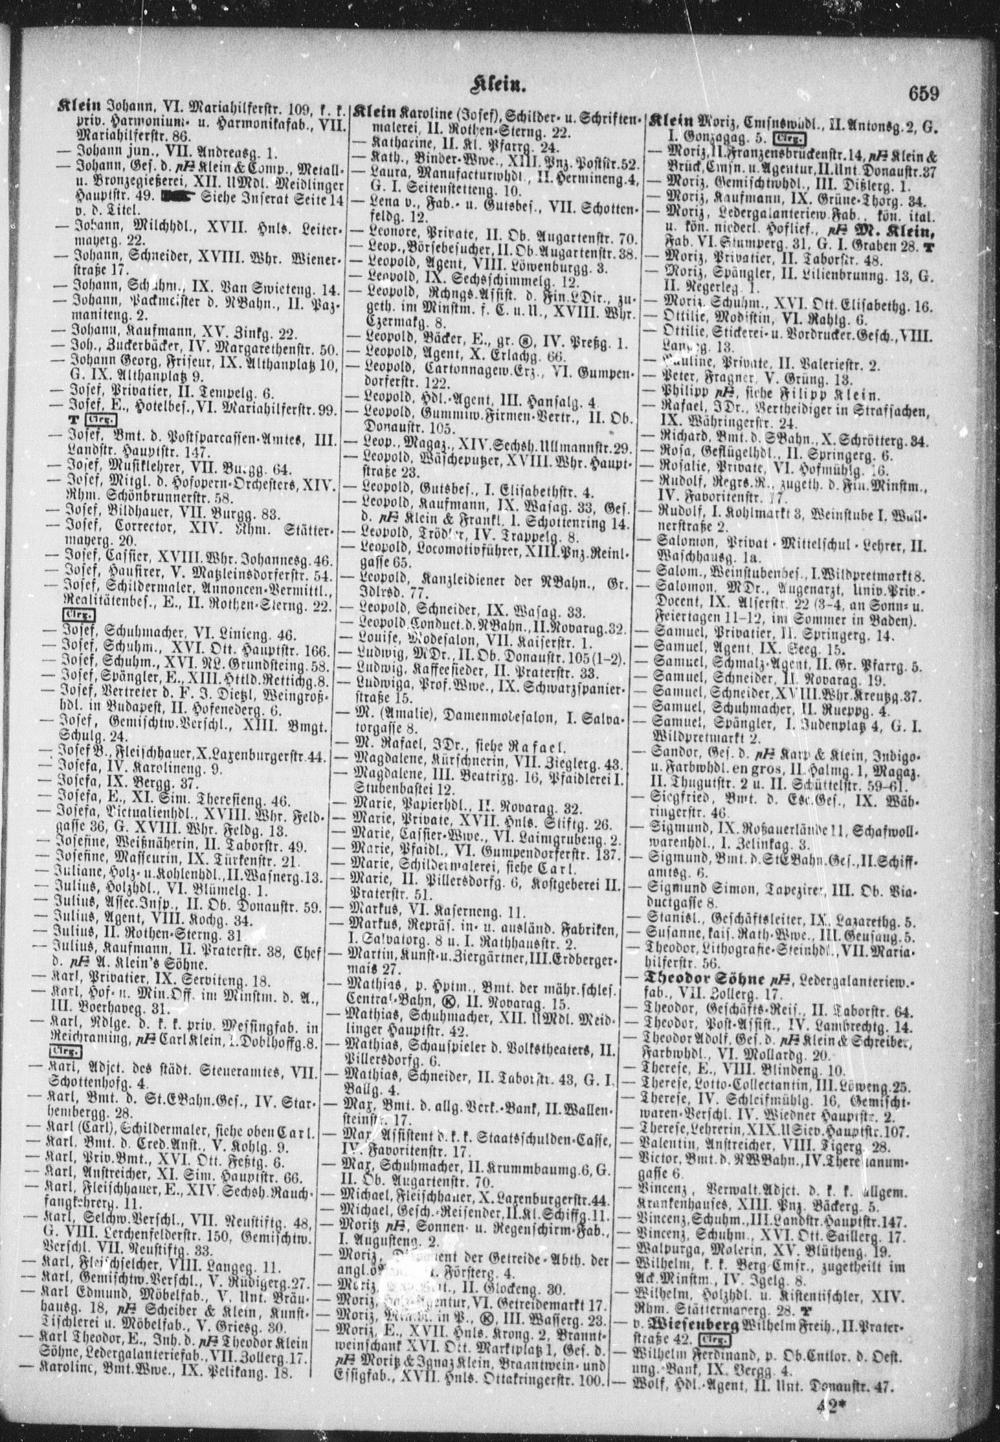 Klein.
659
Klein Johann, VI. Mariahilferstr. 109, k. k.
priv. Harmonium- u. Harmonikafab., VII.
Mariahilferstr. 86.
— Johann jun., VII. Andreasg. 1.
— Johann, Ges. d. Klein & Comp., Metall-
u. Bronzegießerei, XII. UMdl. Meidlinger
Hauptstr. 49. Siehe Inserat Seite 14
v. d. Titel.
— Johann, Milchhdl., XVII. Hnls. Leiter-
mayerg. 22.
— Johann, Schneider, XVIII. Whr. Wiener-
straße 17.
— Johann, Schuhm., IX. Van Swieteng. 14.
— Johann, Packmeister d. NBahn., II. Paz-
maniteng. 2.
— Johann, Kaufmann, XV. Zinkg. 22.
— Joh., Zuckerbäcker, IV. Margarethenstr. 50.
— Johann Georg, Friseur, IX. Althanplatz 10,
G. IX. Althanplatz 9.
— Josef, Privatier, II. Tempelg. 6.
— Josef, E., Hotelbes., VI. Mariahilferstr. 99.
T Clrg.
— Josef, Bmt. d. Postsparcassen-Amtes, III.
Landstr. Hauptstr. 147.
— Josef, Musiklehrer, VII. Burgg. 64.
— Josef, Mitgl. d. Hofopern-Orchesters, XIV.
Rhm. Schönbrunnerstr. 58.
— Josef, Bildhauer, VII. Burgg. 83.
— Josef, Corrector, XIV. Rhm. Stätter-
mayerg. 20.
— Josef, Cassier, XVIII. Whr. Johannesg. 46.
— Josef, Hausirer, V. Matzleinsdorferstr. 54.
— Josef, Schildermaler, Annoncen-Vermittl.,
Realitätenbes., E., II. Rothen-Sterng. 22.
Clrg.
— Josef, Schuhmacher, VI. Linieng. 46.
— Josef, Schuhm., XVI. Ott. Hauptstr. 166.
— Josef, Schuhm., XVI. NL. Grundsteing. 58.
— Josef, Spängler, E., XIII. Httld. Rettichg. 8.
— Josef, Vertreter d. F. J. Dietzl, Weingroß-
hdl. in Budapest, II. Hofenederg. 6.
— Josef, Gemischtw. Verschl., XIII. Bmgt.
Schulg. 24.
— Josef B., Fleischhauer, X. Laxenburgerstr. 44.
— Josefa, IV. Karolineng. 9.
— Josefa, IX. Bergg. 37.
— Josefa, E., XI. Sim. Theresieng. 46.
— Josefa, Victualienhdl., XVIII. Whr. Feld-
gasse 36, G. XVIII. Whr. Feldg. 13.
— Josefine, Weißnäherin, II. Taborstr. 49.
— Josefine, Masseurin, IX. Türkenstr. 21
— Juliane, Holz- u. Kohlenhdl., II. Wasnerg. 13.
— Julius, Holzhdl., VI. Blümelg. 1.
— Julius, Assec. Insp., II. Ob. Donaustr. 59.
— Julius, Agent, VIII. Kochg. 34.
— Julius, II. Rothen-Sterng. 31
— Julius, Kaufmann, II. Praterstr. 38, Chef
d. A. Klein's Söhne.
— Karl, Privatier, IX. Serviteng. 18.
— Karl, Hof- u. Min. Off. im Minstm. d. A.,
III. Boerhaveg. 31.
— Karl, Ndlge. d. k. k. priv. Messingfab. in
Reichraming, Carl Klein, I. Doblhoffg. 8.
Clrg.
— Karl, Adjct. des städt. Steueramtes, VII.
Schottenhofg. 4.
— Karl, Bmt. d. St.EBahn.Ges., IV. Star-
hembergg. 28.
— Karl (Carl), Schildermaler, siehe oben Carl.
— Karl, Bmt. d. Cred. Anst., V. Kohlg. 9.
— Karl, Priv. Bmt., XVI. Ott. Feßtg. 6.
— Karl, Anstreicher, XI. Sim. Hauptstr. 66.
— Karl, Fleischhauer, E., XIV. Sechsh. Rauch-
fangkehrerg. 11.
— Karl, Selchw. Verschl., VII. Neustiftg. 48,
G. VIII. Lerchenfelderstr. 150, Gemischtw.
Verschl. VII. Neustiftg. 33.
— Karl, Fleischselcher, VIII. Langeg. 11.
— Karl, Gemischtw. Verschl., V. Rüdigerg. 27.
— Karl Edmund, Möbelfab., V. Unt. Bräu-
hausg. 18, Scheiber & Klein, Kunst-
Tischlerei u. Möbelfab., V. Griesg. 30.
— Karl Theodor, E., Inh. d. Theodor Klein
Söhne, Ledergalanteriefab., VII. Zollerg. 17.
— Karoline, Bmt. Wwe., IX. Pelikang. 18.
Klein Karoline (Josef), Schilder- u. Schriften-
malerei, II. Rothen-Sterng. 22.
— Katharine, II. Kl. Pfarrg. 24.
— Kath., Binder-Wwe., XIII. Pnz. Poststr. 52.
— Laura, Manufacturwhdl., II. Hermineng. 4,
G. I. Seitenstetteng. 10.
— Lena v., Fab.- u. Gutsbes., VII. Schotten-
feldg. 12.
— Leonore, Private, II. Ob. Augartenstr. 70.
— Leop., Börsebesucher, II. Ob. Augartenstr. 38.
— Leopold, Agent, VIII. Löwenburgg. 3.
— Leopold, IX. Sechsschimmelg. 12.
— Leopold, Rchngs. Assist. d. Fin.LDir., zu-
geth. im Minstm. f. C. u. U., XVIII. Whr.
Czermakg. 8.
— Leopold, Bäcker, E., gr. IV. Preßg. 1.
— Leopold, Agent, X. Erlachg. 66.
— Leopold, Cartonnagew. Erz., VI. Gumpen-
dorferstr. 122.
— Leopold, Hdl.-Agent, III. Hansalg. 4.
— Leopold, Gummiw. Firmen-Vertr., II. Ob.
Donaustr. 105.
— Leop., Magaz., XIV. Sechsh. Ullmannstr. 29.
— Leopold, Wäscheputzer, XVIII. Whr. Haupt-
straße 23.
— Leopold, Gutsbes., I. Elisabethstr. 4.
— Leopold, Kaufmann, IX. Wasag. 33, Ges.
d. Klein & Frankl, I. Schottenring 14.
— Leopold, Trödler, IV. Trappelg. 8.
— Leopold, Locomotivführer, XIII. Pnz. Reinl-
gasse 65.
— Leopold, Kanzleidiener der NBahn., Gr.
Jdlrsd. 77.
— Leopold, Schneider, IX. Wasag. 33.
— Leopold, Conduct. d. NBahn., II. Novarag. 32.
— Louise, Modesalon, VII. Kaiserstr. 1.
— Ludwig, MDr., II. Ob. Donaustr. 105 (1–2).
— Ludwig, Kaffeesieder, II. Praterstr. 33.
— Ludwiga, Prof. Wwe., IX. Schwarzspanier-
straße 15.
— M. (Amalie), Damenmodesalon, I. Salva-
torgasse 8.
— M. Rafael, JDr., siehe Rafael.
— Magdalene, Kürschnerin, VII. Zieglerg. 43.
— Magdalene, III. Beatrixg. 16, Pfaidlerei I.
Stubenbastei 12.
— Marie, Papierhdl., II. Novarag. 32.
— Marie, Private, XVII. Hnls. Stiftg. 26.
— Marie, Cassier-Wwe., VI. Laimgrubeng. 2.
— Marie, Pfaidl., VI. Gumpendorferstr. 137.
— Marie, Schildermalerei, siehe Carl.
— Marie, II. Pillersdorfg. 6, Kostgeberei II.
Praterstr. 51.
— Markus, VI. Kaserneng. 11.
— Markus, Repräs. in- u. ausländ. Fabriken,
I. Salvatorg. 8 u. I. Rathhausstr. 2.
— Martin, Kunst- u. Ziergärtner, III. Erdberger-
mais 27.
— Mathias, p. Hptm., Bmt. der mähr. schles.
Central-Bahn, Ⓚ, II. Novarag. 15.
— Mathias, Schuhmacher, XII. UMdl. Meid-
linger Hauptstr. 42.
— Mathias, Schauspieler d. Volkstheaters, II.
Pillersdorfg. 6.
— Mathias, Schneider, II. Taborstr. 43, G. I.
Ballg. 4.
— Max, Bmt. d. allg. Verk.-Bank, II. Wallen-
steinstr. 17.
— Max, Assistent d. k. k. Staatsschulden-Casse,
IV. Favoritenstr. 17.
— Max, Schuhmacher, II. Krummbaumg. 6, G.
II. Ob. Augartenstr. 70.
— Michael, Fleischhauer, X. Laxenburgerstr. 44.
— Michael, Gesch.-Reisender, II. Kl. Schiffg. 11.
— Moritz, Sonnen- u. Regenschirm-Fab.,
I. Augusteng. 2.
— Moriz, der Getreide-Abth. der
angl. ö Försterg. 4.
— Moriz, II. Glockeng. 30.
— Moriz, VI. Getreidemarkt 17.
— Moriz, in P., Ⓚ, III. Wasserg. 23.
— Moriz, E., XVII. Hnls. Krong. 2, Brannt-
weinschank XVI. Ott. Marktplatz 1, Ges. d.
Moritz & Ignaz Klein, Branntwein- und
Essigfab., XVII. Hnls. Ottakringerstr. 100.
Klein Moriz, Cmsnswhdl., II. Antonsg. 2, G.
I. Gonzagag. 5. Clrg.
— Moriz, II. Franzensbrückenstr. 14, Klein &
Brück, Cmsn. u. Agentur, II. Unt. Donaustr. 37
— Moriz, Gemischtwhdl., III. Dißlerg. 1.
— Moriz, Kaufmann, IX. Grüne-Thorg. 34.
— Moriz, Ledergalanteriew. Fab., kön. ital.
u. kön. niederl. Hoflief., M. Klein,
Fab. VI. Stumperg. 31, G. I. Graben 28. T
— Moriz, Privatier, II. Taborstr. 48.
— Moriz, Spängler, II. Lilienbrunng. 13, G.
II. Negerleg. 1.
— Moriz, Schuhm., XVI. Ott. Elisabethg. 16.
— Ottilie, Modistin, VI. Rahlg. 6.
— Ottilie, Stickerei- u. Vordrucker. Gesch., VIII.
Langeg. 13.
— Pauline, Private, II. Valeriestr. 2.
— Peter, Fragner, V. Grüng. 13.
— Philipp, siehe Filipp Klein.
— Rafael, JDr., Vertheidiger in Strafsachen,
IX. Währingerstr. 24.
— Richard, Bmt. d. SBahn., X. Schrötterg. 34.
— Rosa, Geflügelhdl., II. Springerg. 6.
— Rosalie, Private, VI. Hofmühlg. 16.
— Rudolf, Regrs. R., zugeth. d. Fin. Minstm.,
IV. Favoritenstr. 17.
— Rudolf, I. Kohlmarkt 3, Weinstube I. Wall-
nerstraße 2.
— Salomon, Privat-Mittelschul-Lehrer, II.
Waschhausg. 1a.
— Salom., Weinstubenbes., I. Wildpretmarkt 8.
— Salomon, MDr., Augenarzt, Univ. Priv.-
Docent, IX. Alserstr. 22 (3–4, an Sonn- u.
Feiertagen 11–12, im Sommer in Baden).
— Samuel, Privatier, II. Springerg. 14.
— Samuel, Agent, IX. Seeg. 15.
— Samuel, Schmalz-Agent, II. Gr. Pfarrg. 5.
— Samuel, Schneider, II. Novarag. 19.
— Samuel, Schneider, XVIII. Whr. Kreutzg. 37.
— Samuel, Schuhmacher, II. Rueppg. 4.
— Samuel, Spängler, I. Judenplatz 4, G. I.
Wildpretmarkt 2.
— Sandor, Ges. d. Karp & Klein, Indigo-
u. Farbwhdl. en gros, II. Halmg. 1, Magaz.
II. Thugutstr. 2 u. II. Schüttelstr. 59–61.
— Siegfried, Bmt. d. Esc. Ges., IX. Wäh-
ringerstr. 46.
— Sigmund, IX. Roßauerlände 11, Schafwoll-
warenhdl., I. Zelinkag. 3.
— Sigmund, Bmt. d. StEBahn. Ges., II. Schiff-
amtsg. 6.
— Sigmund Simon, Tapezirer, III. Ob. Via-
ductgasse 8.
— Stanisl., Geschäftsleiter, IX. Lazarethg. 5.
— Susanne, kais. Rath-Wwe., III. Geusaug. 5.
— Theodor, Lithografie-Steinhdl., VII. Maria-
hilferstr. 56.
— Theodor Söhne, Ledergalanteriew.-
fab., VII. Zollerg. 17.
— Theodor, Geschäfts-Reis., II. Taborstr. 64.
— Theodor, Post-Assist., IV. Lambrechtg. 14.
— Theodor Adolf, Ges. d. Klein & Schreiber,
Farbwhdl., VI. Mollardg. 20.
— Therese, E., VIII. Blindeng. 10.
— Therese, Lotto-Collectantin, III. Löweng. 25.
— Therese, IV. Schleifmühlg. 16, Gemischt-
waren-Verschl. IV. Wiedner Hauptstr. 2.
— Therese, Lehrerin, XIX. USiev. Hauptstr. 107.
— Valentin, Anstreicher, VIII. Tigerg. 28.
— Victor, Bmt. d. NWBahn., IV. Theresianum-
gasse 6.
— Vincenz, Verwalt. Adjct. d. k. k. allgem.
Krankenhauses, XIII. Pnz. Bäckerg. 5.
— Vincenz, Schuhm., III. Landstr. Hauptstr. 147.
— Vincenz, Schuhm., XVI. Ott. Saillerg. 17.
— Walpurga, Molerin, XV. Blütheng. 19.
— Wilhelm, k. k. Berg-Cmsr., zugetheilt im
Ack. Minstm., IV. Igelg. 8.
— Wilhelm, Holzhdl. u. Kistentischler, XIV.
Rhm. Stättermayerg. 28. T
— v. Wiesenberg Wilhelm Freih., II. Prater-
straße 42. Clrg.
— Wilhelm Ferdinand, p. Ob. Cntlor. d. Oest.
ung.-Bank, IX. Bergg. 4.
— Wolf, Hdl.-Agent, II. Unt. Donaustr. 47.
42*